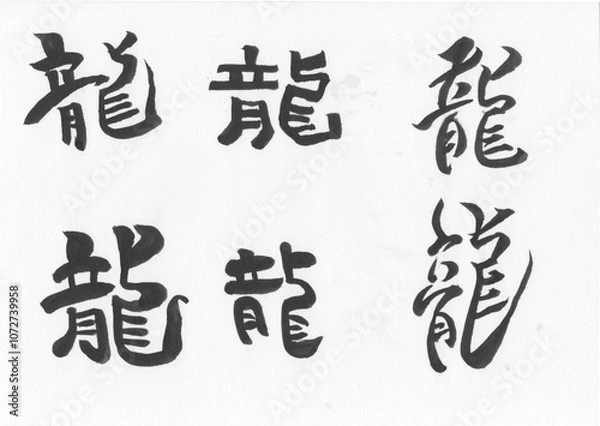 龍 龍 龍
龍 龍 龍
Adobe Stock | #1072739958